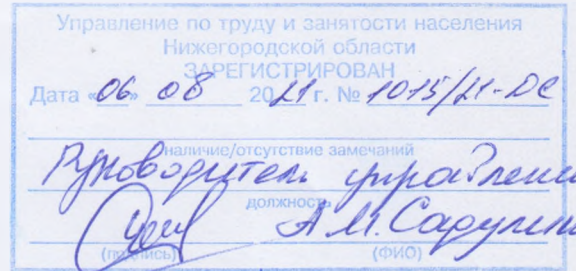 Управление по труду и занятости населения
Нижегородской области
ЗАРЕГИСТРИРОВАН
Дата «06» 08 2021 г. № 1015/21-ДС
наличие/отсутствие замечаний
Руководитель управлени
должность
А.М.
(подпись) (ФИО)